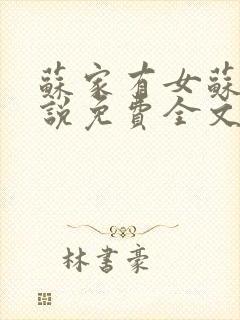 蘇家有女蘇
說免費全文
林書豪